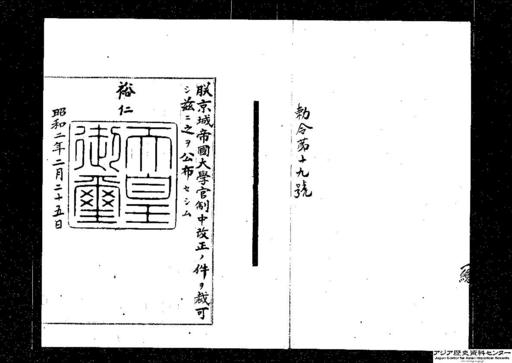 勅令第十九號
朕京城帝國大學官制中改正ノ件ヲ裁可
シ茲ニ之ヲ公布セシム
裕仁
天皇
御璽
昭和二年二月二十五日
アジア歴史資料センター
Japan Center for Asian Historical Records